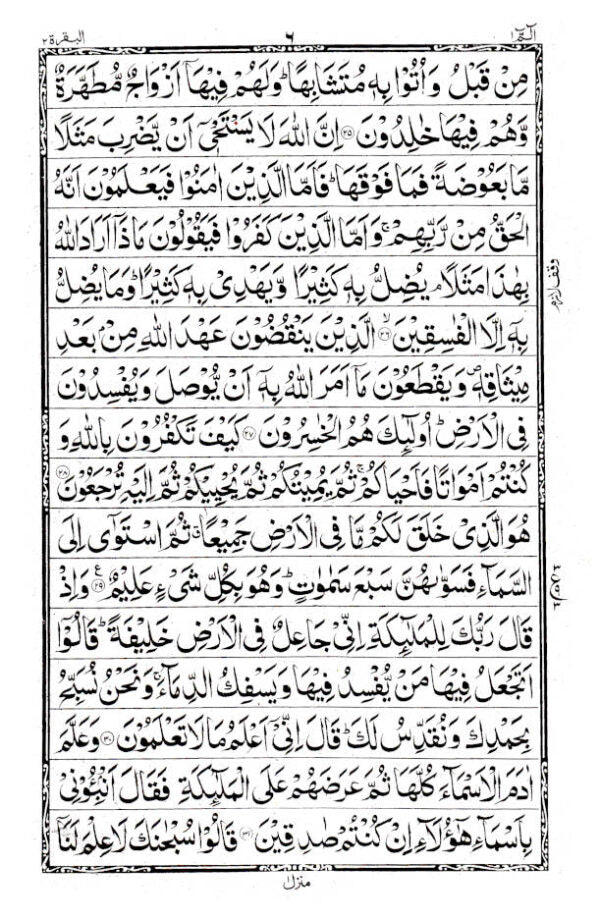 الٓمّٓ ١ ٦ البقرة ٢
مِنْ قَبْلُ وَاُتُوْا بِهٖ مُتَشَابِهًا ؕ وَلَهُمْ فِيْهَاۤ اَزْوَاجٌ مُّطَهَّرَةٌ
وَّهُمْ فِيْهَا خٰلِدُوْنَ ۝۲۵ اِنَّ اللّٰهَ لَا يَسْتَحْيٖۤ اَنْ يَّضْرِبَ مَثَلًا
مَّا بَعُوْضَةً فَمَا فَوْقَهَا ؕ فَاَمَّا الَّذِيْنَ اٰمَنُوْا فَيَعْلَمُوْنَ اَنَّهُ
الْحَقُّ مِنْ رَّبِّهِمْ ۚ وَاَمَّا الَّذِيْنَ كَفَرُوْا فَيَقُوْلُوْنَ مَاذَاۤ اَرَادَ اللّٰهُ
بِهٰذَا مَثَلًا ۘ يُضِلُّ بِهٖ كَثِيْرًا وَّيَهْدِىْ بِهٖ كَثِيْرًا ؕ وَمَا يُضِلُّ
وقف لازم
بِهٖۤ اِلَّا الْفٰسِقِيْنَ ۝۲۶ۙ الَّذِيْنَ يَنْقُضُوْنَ عَهْدَ اللّٰهِ مِنْۢ بَعْدِ
مِيْثَاقِهٖ ۪ وَيَقْطَعُوْنَ مَاۤ اَمَرَ اللّٰهُ بِهٖۤ اَنْ يُّوْصَلَ وَيُفْسِدُوْنَ
فِى الْاَرْضِ ؕ اُولٰٓئِكَ هُمُ الْخٰسِرُوْنَ ۝۲۷ كَيْفَ تَكْفُرُوْنَ بِاللّٰهِ وَ
كُنْتُمْ اَمْوَاتًا فَاَحْيَاكُمْ ۚ ثُمَّ يُمِيْتُكُمْ ثُمَّ يُحْيِيْكُمْ ثُمَّ اِلَيْهِ تُرْجَعُوْنَ ۝۲۸
هُوَ الَّذِىْ خَلَقَ لَكُمْ مَّا فِى الْاَرْضِ جَمِيْعًا ۗ ثُمَّ اسْتَوٰٓى اِلَى
السَّمَآءِ فَسَوّٰىهُنَّ سَبْعَ سَمٰوٰتٍ ؕ وَهُوَ بِكُلِّ شَىْءٍ عَلِيْمٌ ۝۲۹ع وَاِذْ
قَالَ رَبُّكَ لِلْمَلٰٓئِكَةِ اِنِّىْ جَاعِلٌ فِى الْاَرْضِ خَلِيْفَةً ؕ قَالُوْۤا
اَتَجْعَلُ فِيْهَا مَنْ يُّفْسِدُ فِيْهَا وَيَسْفِكُ الدِّمَآءَ ۚ وَنَحْنُ نُسَبِّحُ
بِحَمْدِكَ وَنُقَدِّسُ لَكَ ؕ قَالَ اِنِّىْۤ اَعْلَمُ مَا لَا تَعْلَمُوْنَ ۝۳۰ وَعَلَّمَ
اٰدَمَ الْاَسْمَآءَ كُلَّهَا ثُمَّ عَرَضَهُمْ عَلَى الْمَلٰٓئِكَةِ فَقَالَ اَنْۢبِـُٔوْنِىْ
بِاَسْمَآءِ هٰٓؤُلَآءِ اِنْ كُنْتُمْ صٰدِقِيْنَ ۝۳۱ قَالُوْا سُبْحٰنَكَ لَا عِلْمَ لَنَاۤ
منزل ١